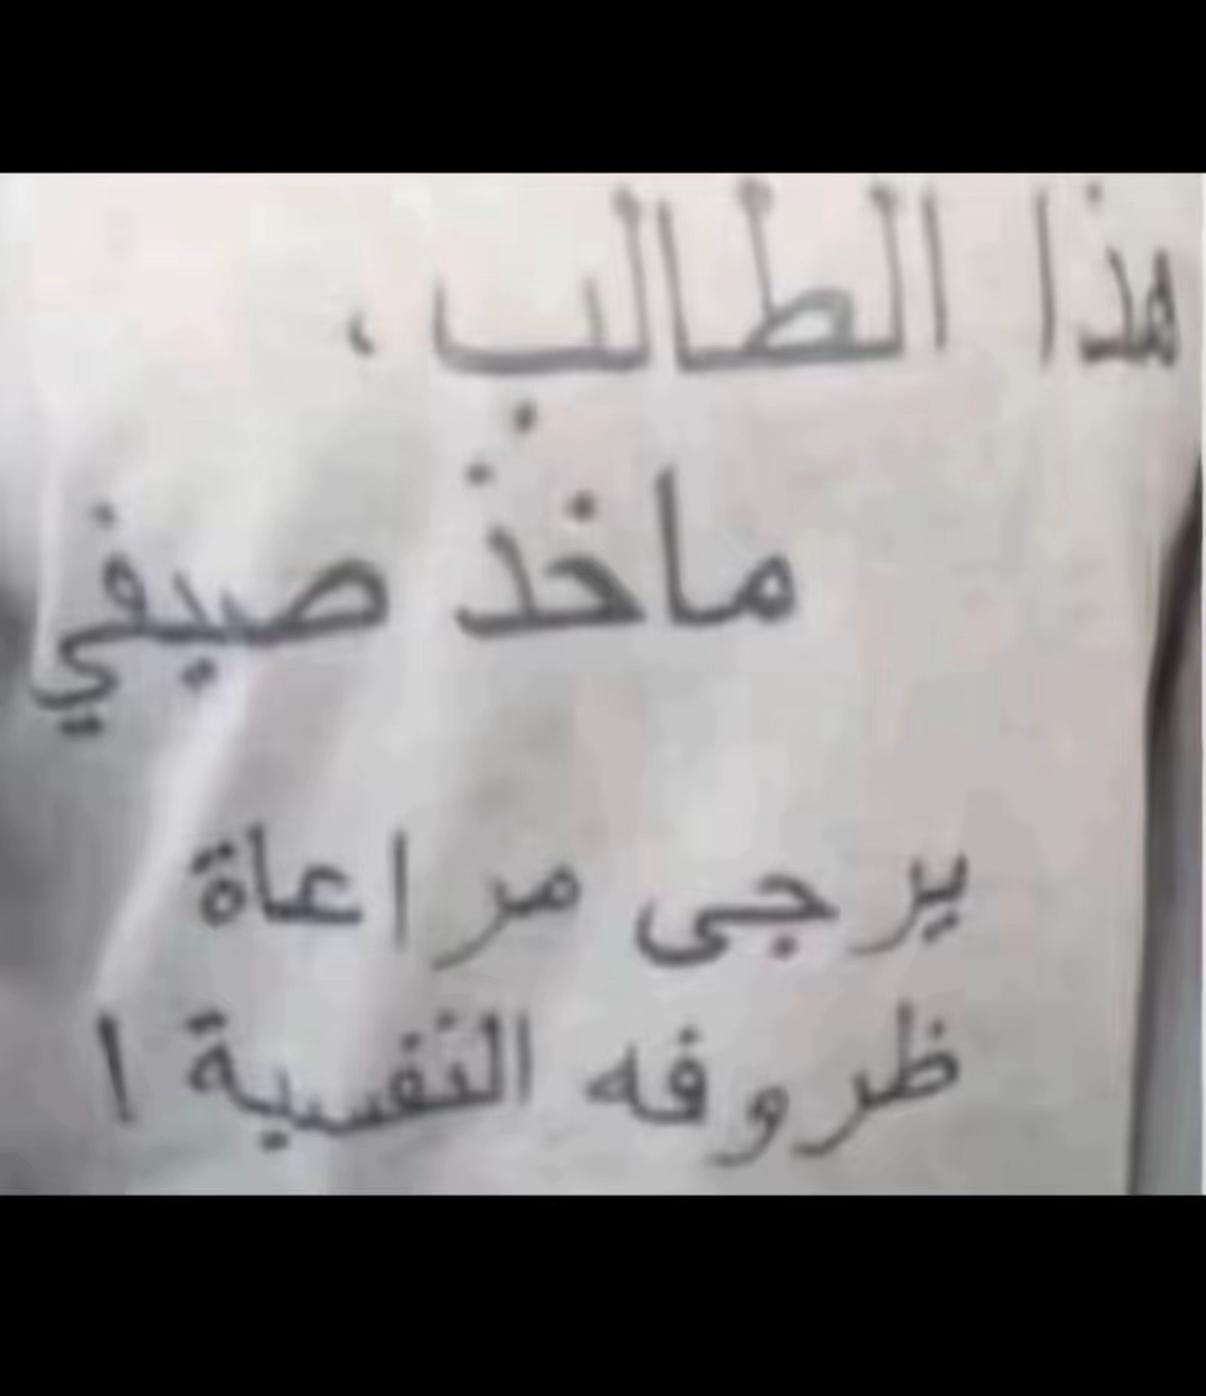 هذا الطالب ،
ماخذ صيفي
يرجى مراعاة
ظروفه النفسية !